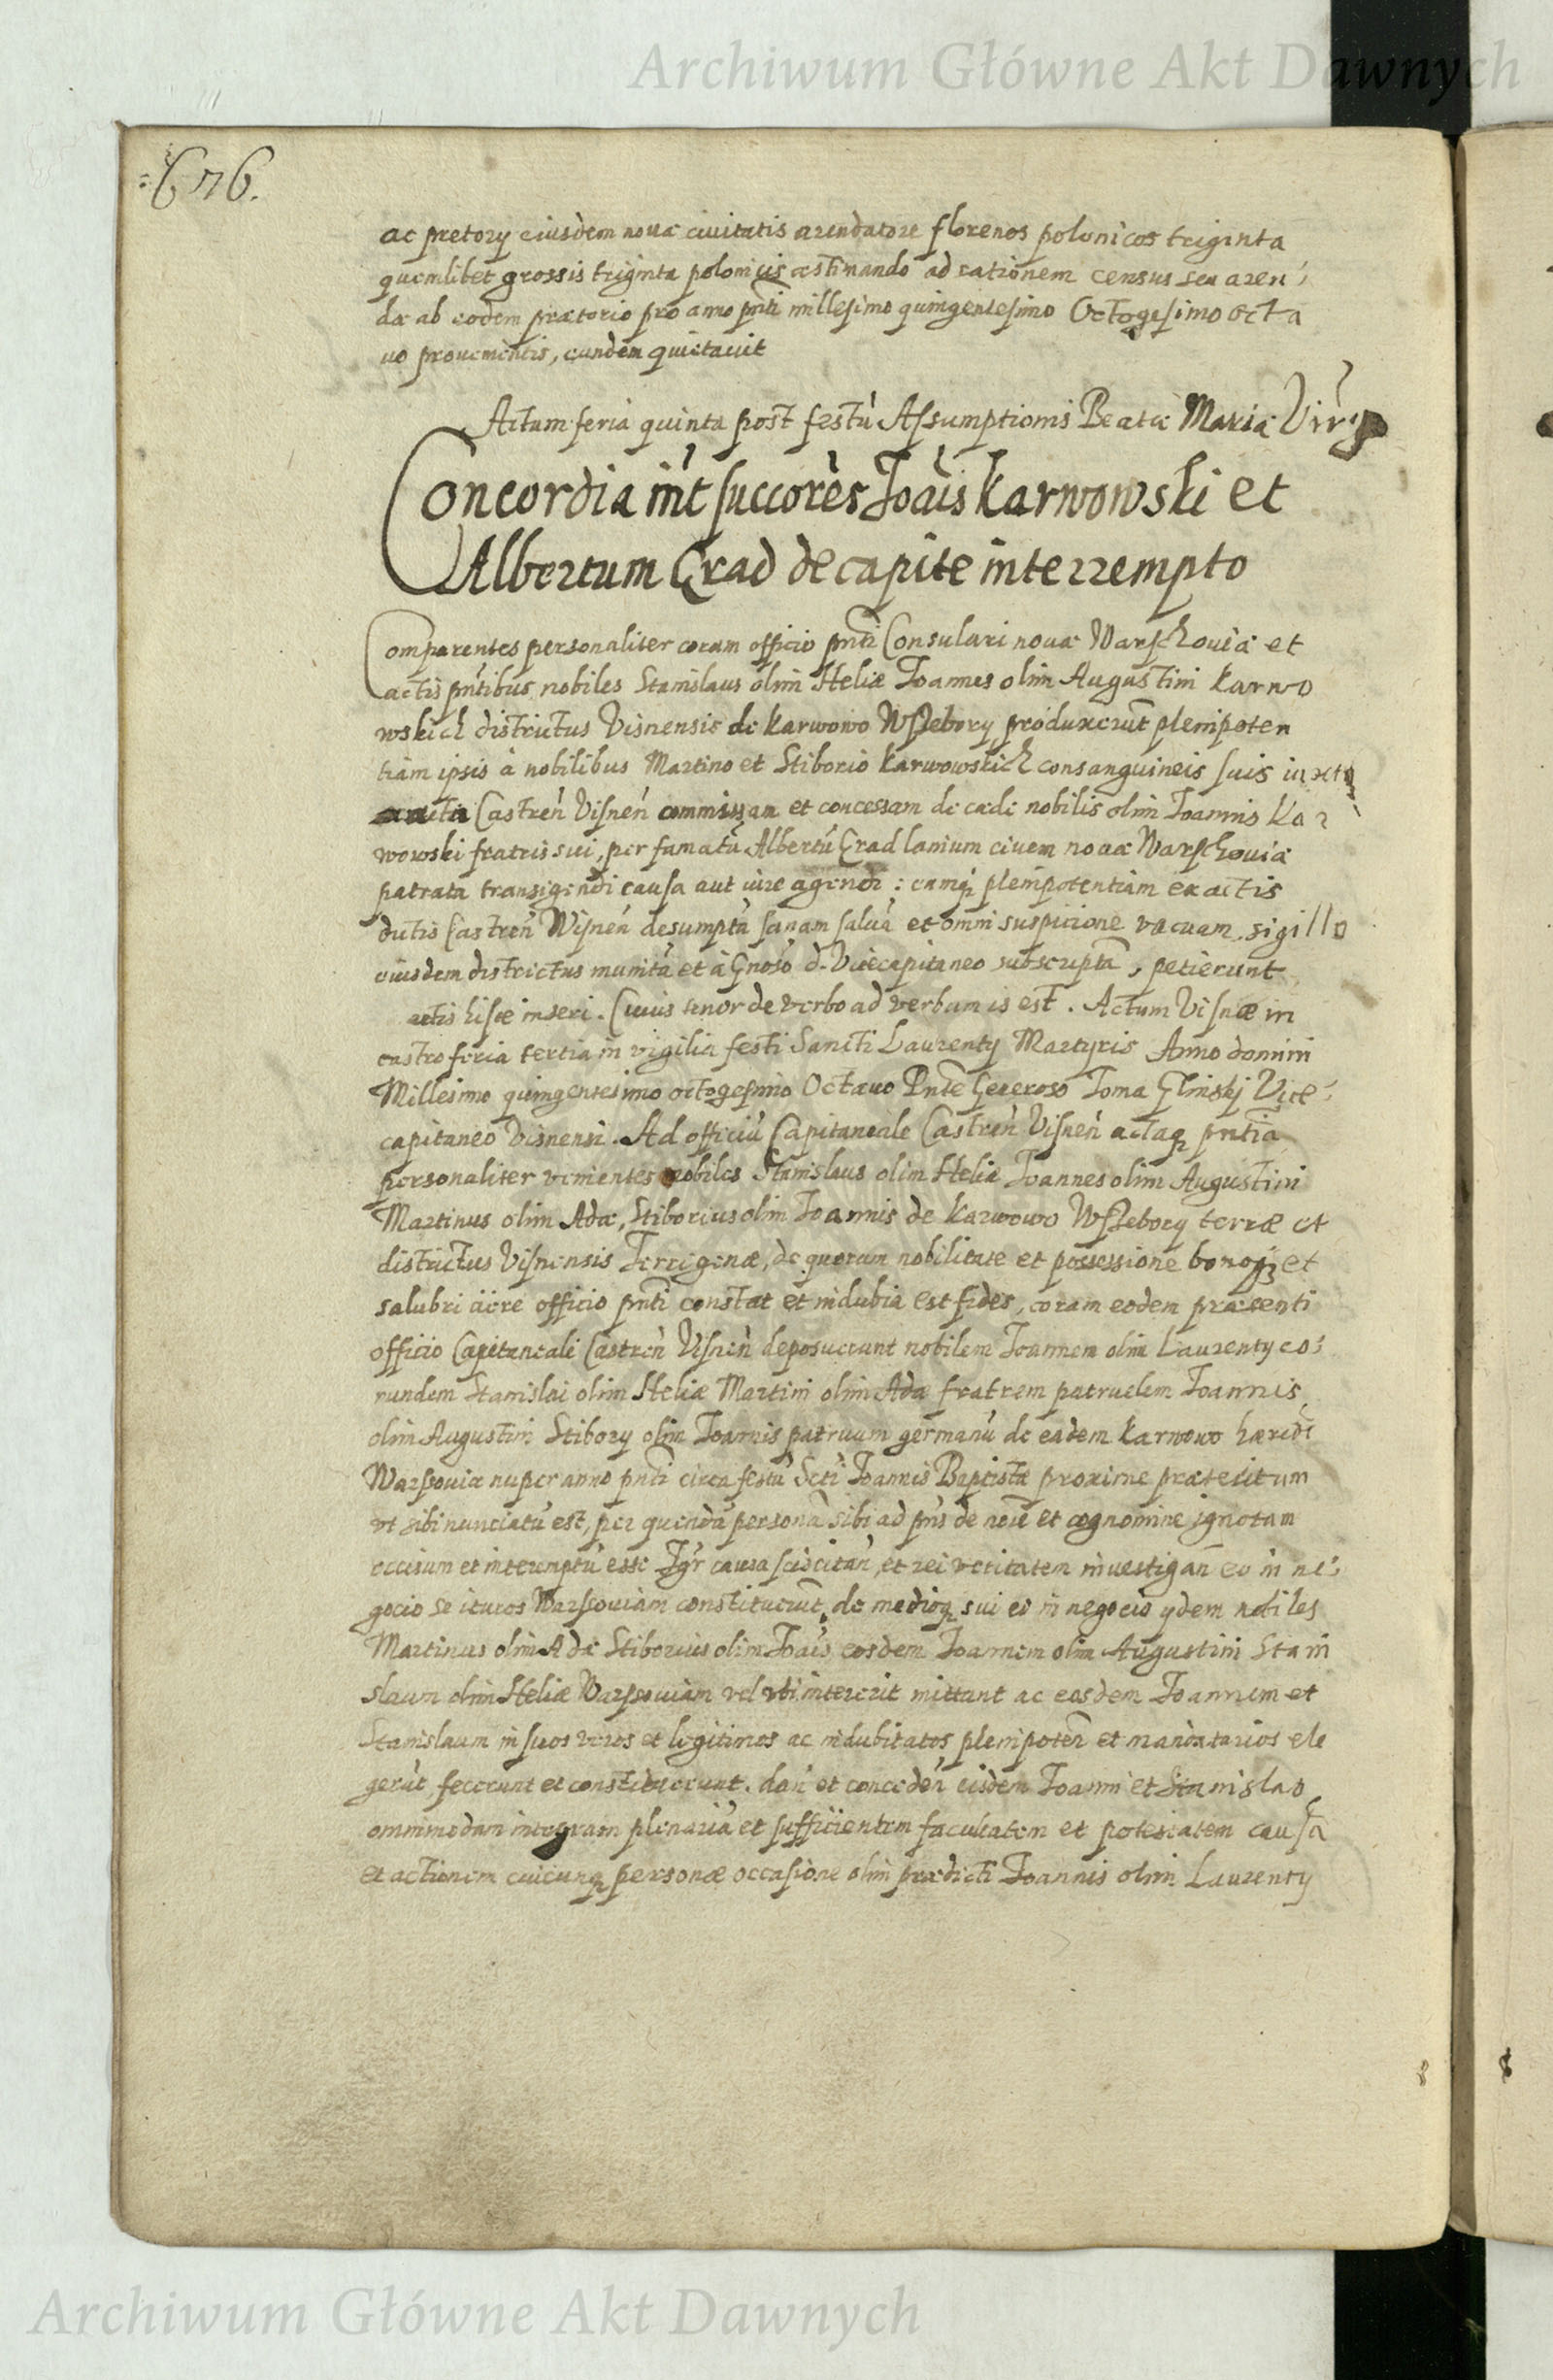 Archiwum Główne Akt Dawnych
:676.
ac pretory eiusdem nouæ ciuitatis arendatore florenos polonicos triginta
quemlibet grossis triginta polonicis æstimando ad rationem census seu aren:
dæ ab eodem prætorio pro anno pñti millesimo quingentesimo Octogesimo octa
uo prouenientis, eundem quietauit
Actum feria quinta post festũ Assumptionis Beatæ Mariæ Virg
Concordia int̃ succores̃ Joãis Karwowski et
Albertum Crad de capite interrempto
Comparentes personaliter coram officio pñti Consulari nouæ Warschouiæ et
actis pñtibus nobiles Stanislaus olim Heliæ Joannes olim Augustini Karwo
wskich districtus Visnensis de Karwowo Wssebory produxerũt plenipoten
tiam ipsis à nobilibus Martino et Stiborio Karwowskich consanguineis suis iuxta
acta Castreñ Visneñ commissam et concessam de cæde nobilis olim Joannis Kar
wowski fratris sui, per famatũ Albertũ Crad lanium ciuem nouæ Warschouiæ
patrata transigendi causa aut iure agendi: eamq plenipotentiam ex actis
dictis Castreñ Wisneñ desumptã sanam saluã et omni suspicione vacuam, sigillo
eiusdem districtus munitã et à Gnoso d. Vicecapitaneo subscriptã, petierunt
actis hisce inseri. Cuius tenor de verbo ad verbum is est. Actum Visnæ in
castro feria tertia in vigilia festi Sancti Laurenty Martyris Anno domini
Millesimo quingentesimo octogesimo Octauo Pñte Generoso Toma Glinskj Vice:
capitaneo Visnensi. Ad officiũ Capitaneale Castreñ Visneñ actaq pñtia
personaliter venientes nobiles Stanislaus olim Heliæ Joannes olim Augustini
Martinus olim Adæ, Stiborius olim Joannis de Karwowo Wssebory terræ et
districtus Visnensis Terrigenæ, de quorum nobilitate et possessione bonoꝝ et
salubri aëre officio pñti constat et indubia est fides, coram eodem præsenti
officio Capitaneali Castreñ Visneñ deposuerunt nobilem Joannem olim Laurenty eo:
rundem Stanislai olim Heliæ Martini olim Adæ fratrem patruelem Joannis
olim Augustini Stibory olim Joannis patruum germanũ de eadem Karwowo hæredẽ
Warssouiæ nuper anno pñti circa festũ Scti Joannis Baptistæ proxime præteritum
vt sibi nunciatũ est, per quendã personã sibi ad pñs de noie et cognomine ignotam
occisum et interemptũ esse Igr causa sciscitañ, et rei veritatem inuestigañ eo in ne:
gocio se ituros Warssouiam constituerũt, de medioq sui eo in negocio ydem nobiles
Martinus olim Adæ Stiborius olim Joãis eosdem Joannem olim Augustini Stani
slaum olim Heliæ Warssouiam vel vbi intererit mittunt ac eosdem Joannem et
Stanislaum in suos veros et legitimos ac indubitatos plenipoteñ et mandatarios ele
gerũt, fecerunt et constituerunt. dañ et concedeñ eisdem Joanni et Stanislao
omnimodam integram plenariã et sufficientem facultatem et potestatem causã
et actionem cuicunq personæ occasione olim prædicti Joannis olim Laurenty
Archiwum Główne Akt Dawnych